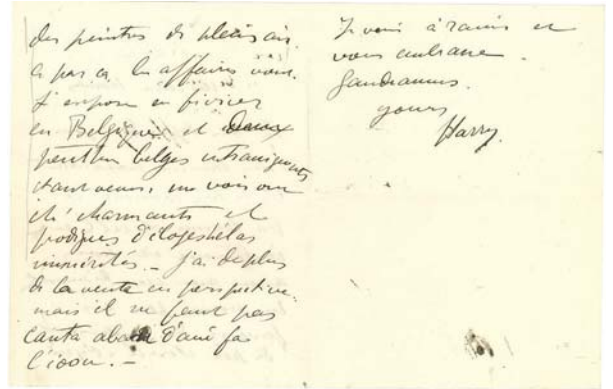 des peintres de plein air.
à part ça les affaires vont.
J'expose en février
en Belgique et deux
peintres belges intransigeants
étant venus, me voir ont
été charmants et
prodigues d'éloges hélas
immérités. – j'ai de plus
de la vente en perspective.
mais il ne faut pas
canta aban d'avé fa
l'ioou. –
Je vous
vous embrasse
yours
Harry.